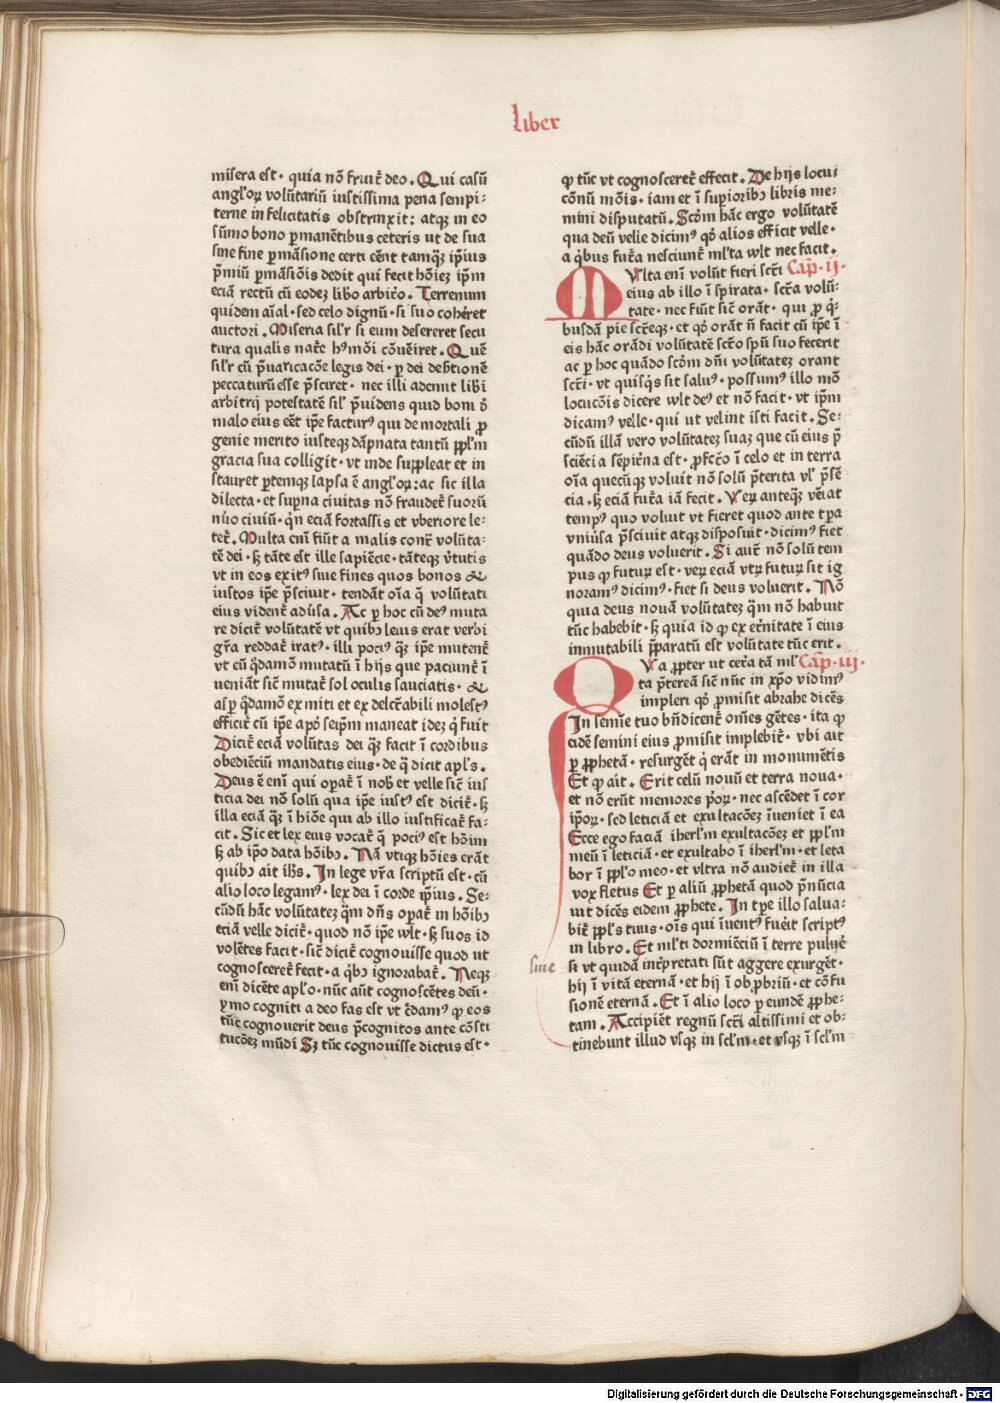 liber
misera est· quia nō fruit̄ deo. Qui casū
angl'oꝝ volūtariū iustissima pena sempi⸗
terne in felicitatis obstrinxit: atqꝫ in eo
sūmo bono ꝑmanētibus ceteris ut de sua
sine fine ꝑmāsione certi cēnt tamqꝫ ip̄ius
p̄miū ꝑmāsiōis dedit qui fecit hōiez ip̄m
eciā rectū cū eodez libo arbit̄o. Terrenum
quidem aīal· sed celo dignū· si suo coheret
auctori. Miseria sil'r si eum desereret secu
tura qualis nat̄e hꝰmōi cōueīret. Quē
sil'r cū p̄uaricacōe legis dei· ꝑ dei desh̄tionē
peccaturū esse p̄sciret· nec illi ademit lib̄i
arbitrij potestatē sil' p̄uidens quid boni ō
malo eius cēt ip̄e facturꝰ qui de mortali ꝓ
genie merito iusteqꝫ dāpnata tantū ppl'm
gracia sua colligit· vt inde suppleat et in
stauret ꝑtemqꝫ lapsa ē angl'oꝝ: ac sic illa
dilecta· et suꝑna ciuitas nō fraudet̄ suorū
nūo ciuiū· qn̄ eciā fortassis et vberiore le⸗
tet̄. Multa enī fiūt a malis cont̄ volūta⸗
tē dei· sꝫ tāte est ille sapiēcie· tāteqꝫ v̄tutis
vt in eos exitꝰ siue fines quos bonos ⁊
iustos ip̄e p̄sciuit· tendāt oīa q̄ volūtati
eius vident̄ adūsa. Ac ꝑ hoc cū deꝰ muta
re dicit̄ volūtatē vt quibꝫ lenis erat verbi
gr̄a reddat̄ iratꝰ· illi pociꝰ qꝫ ip̄e mutent̄
vt cū qdāmō mutatū ī hijs que paciunt̄ ī
ueniāt sic̄ mutat̄ sol oculis sauciatis· ⁊
asꝑ qdāmō ex miti et ex delct̄abili molestꝰ
efficit̄ cū ip̄e apō seip̄m maneat idez q̄ fuit
Dicit̄ eciā volūtas dei qꝫ facit ī cordibus
obediēciū mandatis eius· de q̄ dicit apl's.
Deus ē enī qui oꝑat̄ ī nob̄ et velle sic̄ ius
ticia dei nō solū qua ip̄e iustꝰ est dicit̄· sꝫ
illa eciā qꝫ ī hiōe qui ab illo iustificat̄ fa⸗
cit. Sic et lex eius vocat̄ q̄ pociꝰ est hōim
sꝫ ab ip̄o data hōibꝫ. Nā vtiqꝫ hōies erāt
quibꝫ ait ih̄s. In lege vr̄a scriptū est· cū
alio loco legamꝰ· lex dei ī corde ip̄ius. Se⸗
cūdū hāc volūtatez q̄m dn̄s oꝑat̄ in hōibꝫ
eciā velle dicit̄· quod nō ip̄e wlt· sꝫ suos id
volētes facit· sic̄ dicit̄ cognouisse quod ut
cognosceret̄ fecit· a qbꝫ ignorabat̄. Neqꝫ
enī dicēte apl'o· nūc aūt cognoscētes deū·
ymo cogniti a deo fas est vt c̄damꝰ ꝙ eos
tūc cognouerit deus p̄cognitos ante cōsti
tucōez mūdi Sꝫ tūc cognouisse dictus est·
ꝙ tūc vt cognosceret̄ effecit. De hijs locu⸗
cōnū mōis· iam et ī suꝑioribꝫ libris me⸗
mini disputatū. Scdm hāc ergo volūtatē
qua deū velle dicimꝰ qd alios efficit velle·
a qbus fut̄a nesciunt̄ ml'ta wlt nec facit.
MVlta enī volūt fieri scti Cap̄·ij·
eius ab illo ī spirata· sct̄a volū⸗
tate· nec fiūt sic̄ orāt· qui ꝓ q⸗
busdā pie sct̄eqꝫ· et qd orāt n̄ facit cū ip̄e ī
eis hāc orādi volūtatē sct̄o spū suo fecerit
ac ꝑ hoc quādo scdm dn̄i volūtatez orant
sct̄i· vt quisqs sit saluꝰ· possumꝰ illo mō
locucōis dicere wlt deꝰ et nō facit· vt ip̄m
dicamꝰ velle· qui ut velint isti facit. Se⸗
cūdū illā vero volūtatez suaz que cū eius p̄
sciēcia sēpit̄na est· ꝓfcō ī celo et in terra
oīa quecūqꝫ voluit nō solū p̄terita vl' p̄sē
cia· sꝫ eciā fut̄a iā fecit. Veꝝ anteqꝫ vēiat
tempꝰ quo voluit vt fieret quod ante tꝑa
vniūsa p̄sciuit atqꝫ disposuit· dicimꝰ fiet
quādo deus voluerit. Si aut̄ nō solū tem
pus ꝙ futurꝝ est· veꝝ eciā vtꝝ futurꝝ sit ig
noramꝰ dicimꝰ· fiet si deus voluerit. Nō
quia deus nouā volūtatez q̄m nō habuit
tūc habebit· sꝫ quia id ꝙ ex et̄nitate ī eius
inmutabili p̄paratū est volūtate tūc erit.
QVa ꝓpter ut cet̄a tā ml' Cap̄·iij·
ta p̄tereā sic̄ nūc in xp̄o vidimꝰ
impleri qd ꝓmisit abrahe dicēs
In semīe tuo bn̄dicent̄ om̄es gētes· ita ꝙ
eidē semini eius ꝓmisit implebit̄· vbi ait
ꝑ ꝓphetā· resurgēt q̄ erāt in monumētis
Et ꝙ ait. Erit celū nouū et terra noua·
et nō erūt memores pōꝝ· nec ascēdet ī cor
ip̄oꝝ· sed leticiā et exultacōez īueniet ī ea
Ecce ego faciā iherl'm exultacōez et ppl'm
meū ī leticiā· et exultabo ī iherl'm· et leta
bor ī ppl'o meo· et vltra nō audiet̄ in illa
vox fletus Et ꝑ aliū ꝓphetā quod p̄nūcia
uit dicēs eidem ꝓphete. In tꝑe illo salua⸗
bit̄ ppl's tuus· oīs qui īuentꝰ fuēit scriptꝰ
in libro. Et ml'ti dormiēciū ī terre puluē
siue si vt quidā int̄pretati sūt aggere exurgēt·
hij ī vitā eternā· et hij ī obꝓbriū· et cōfu
sionē eternā. Et ī alio loco ꝑ eundē ꝓphe⸗
tam. Accipiēt regnū sct̄i altissimi et ob⸗
tinebunt illud vsqꝫ in scl'm· et vsqꝫ ī scl'm
Digitalisierung gefördert durch die Deutsche Forschungsgemeinschaft - DFG